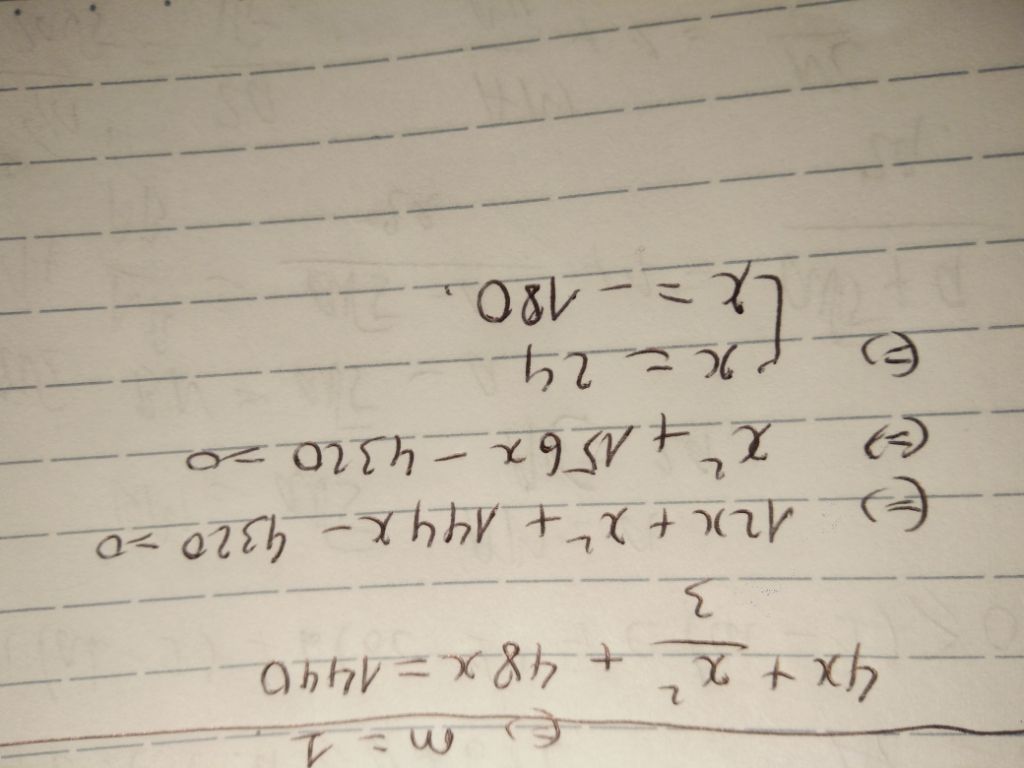 (=) m = 1
4x + x²/3 + 48x = 1440
(=) 12x + x² + 144x - 4320 = 0
(=) x² + 156x - 4320 = 0
(=) [ x = 24
x = - 180.